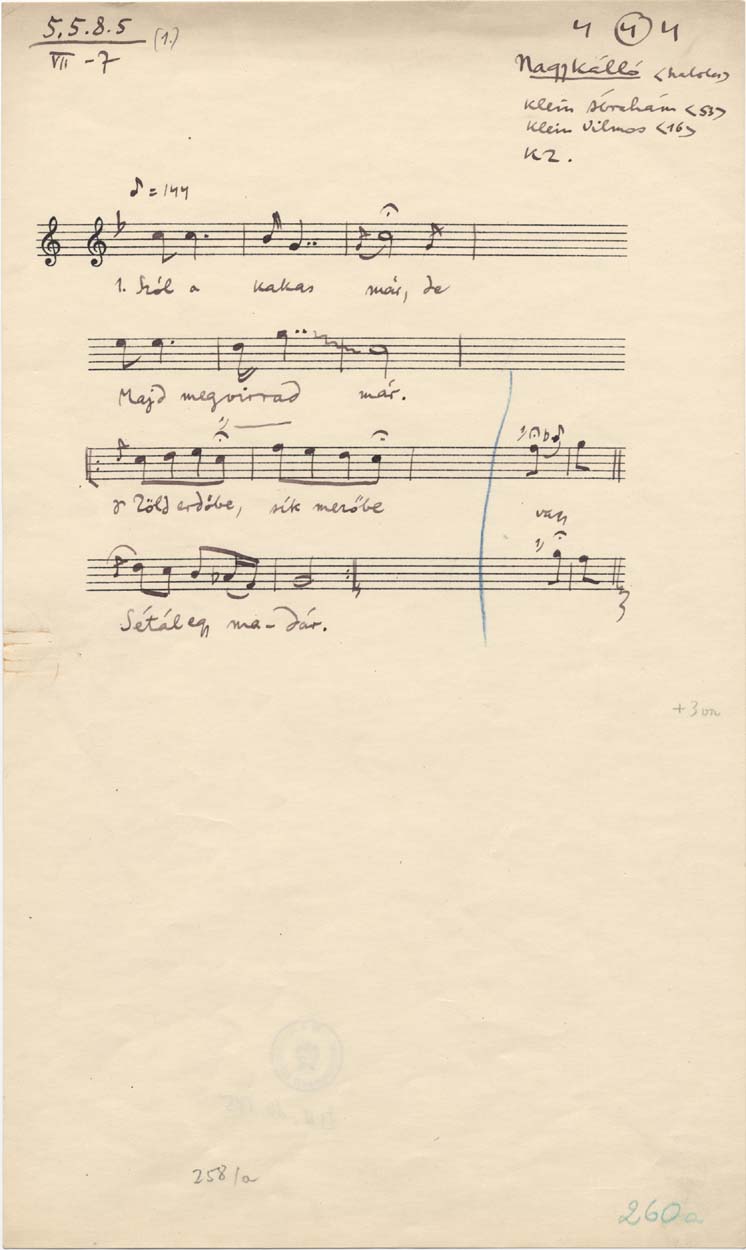 5.5.8.5 (1.)
VII - 7
4 4 4
Nagykálló <Szabolcs>
Klein Ábrahám <53>
Klein Vilmos <16>
K Z.
♪ = 144
1. Szól a kakas már, de
Majd megvirrad már.
1)
Zöld erdőbe, sík mezőbe
1)
vagy
1)
Sétál egy ma-dár.
+3 vsz
258/a
260a